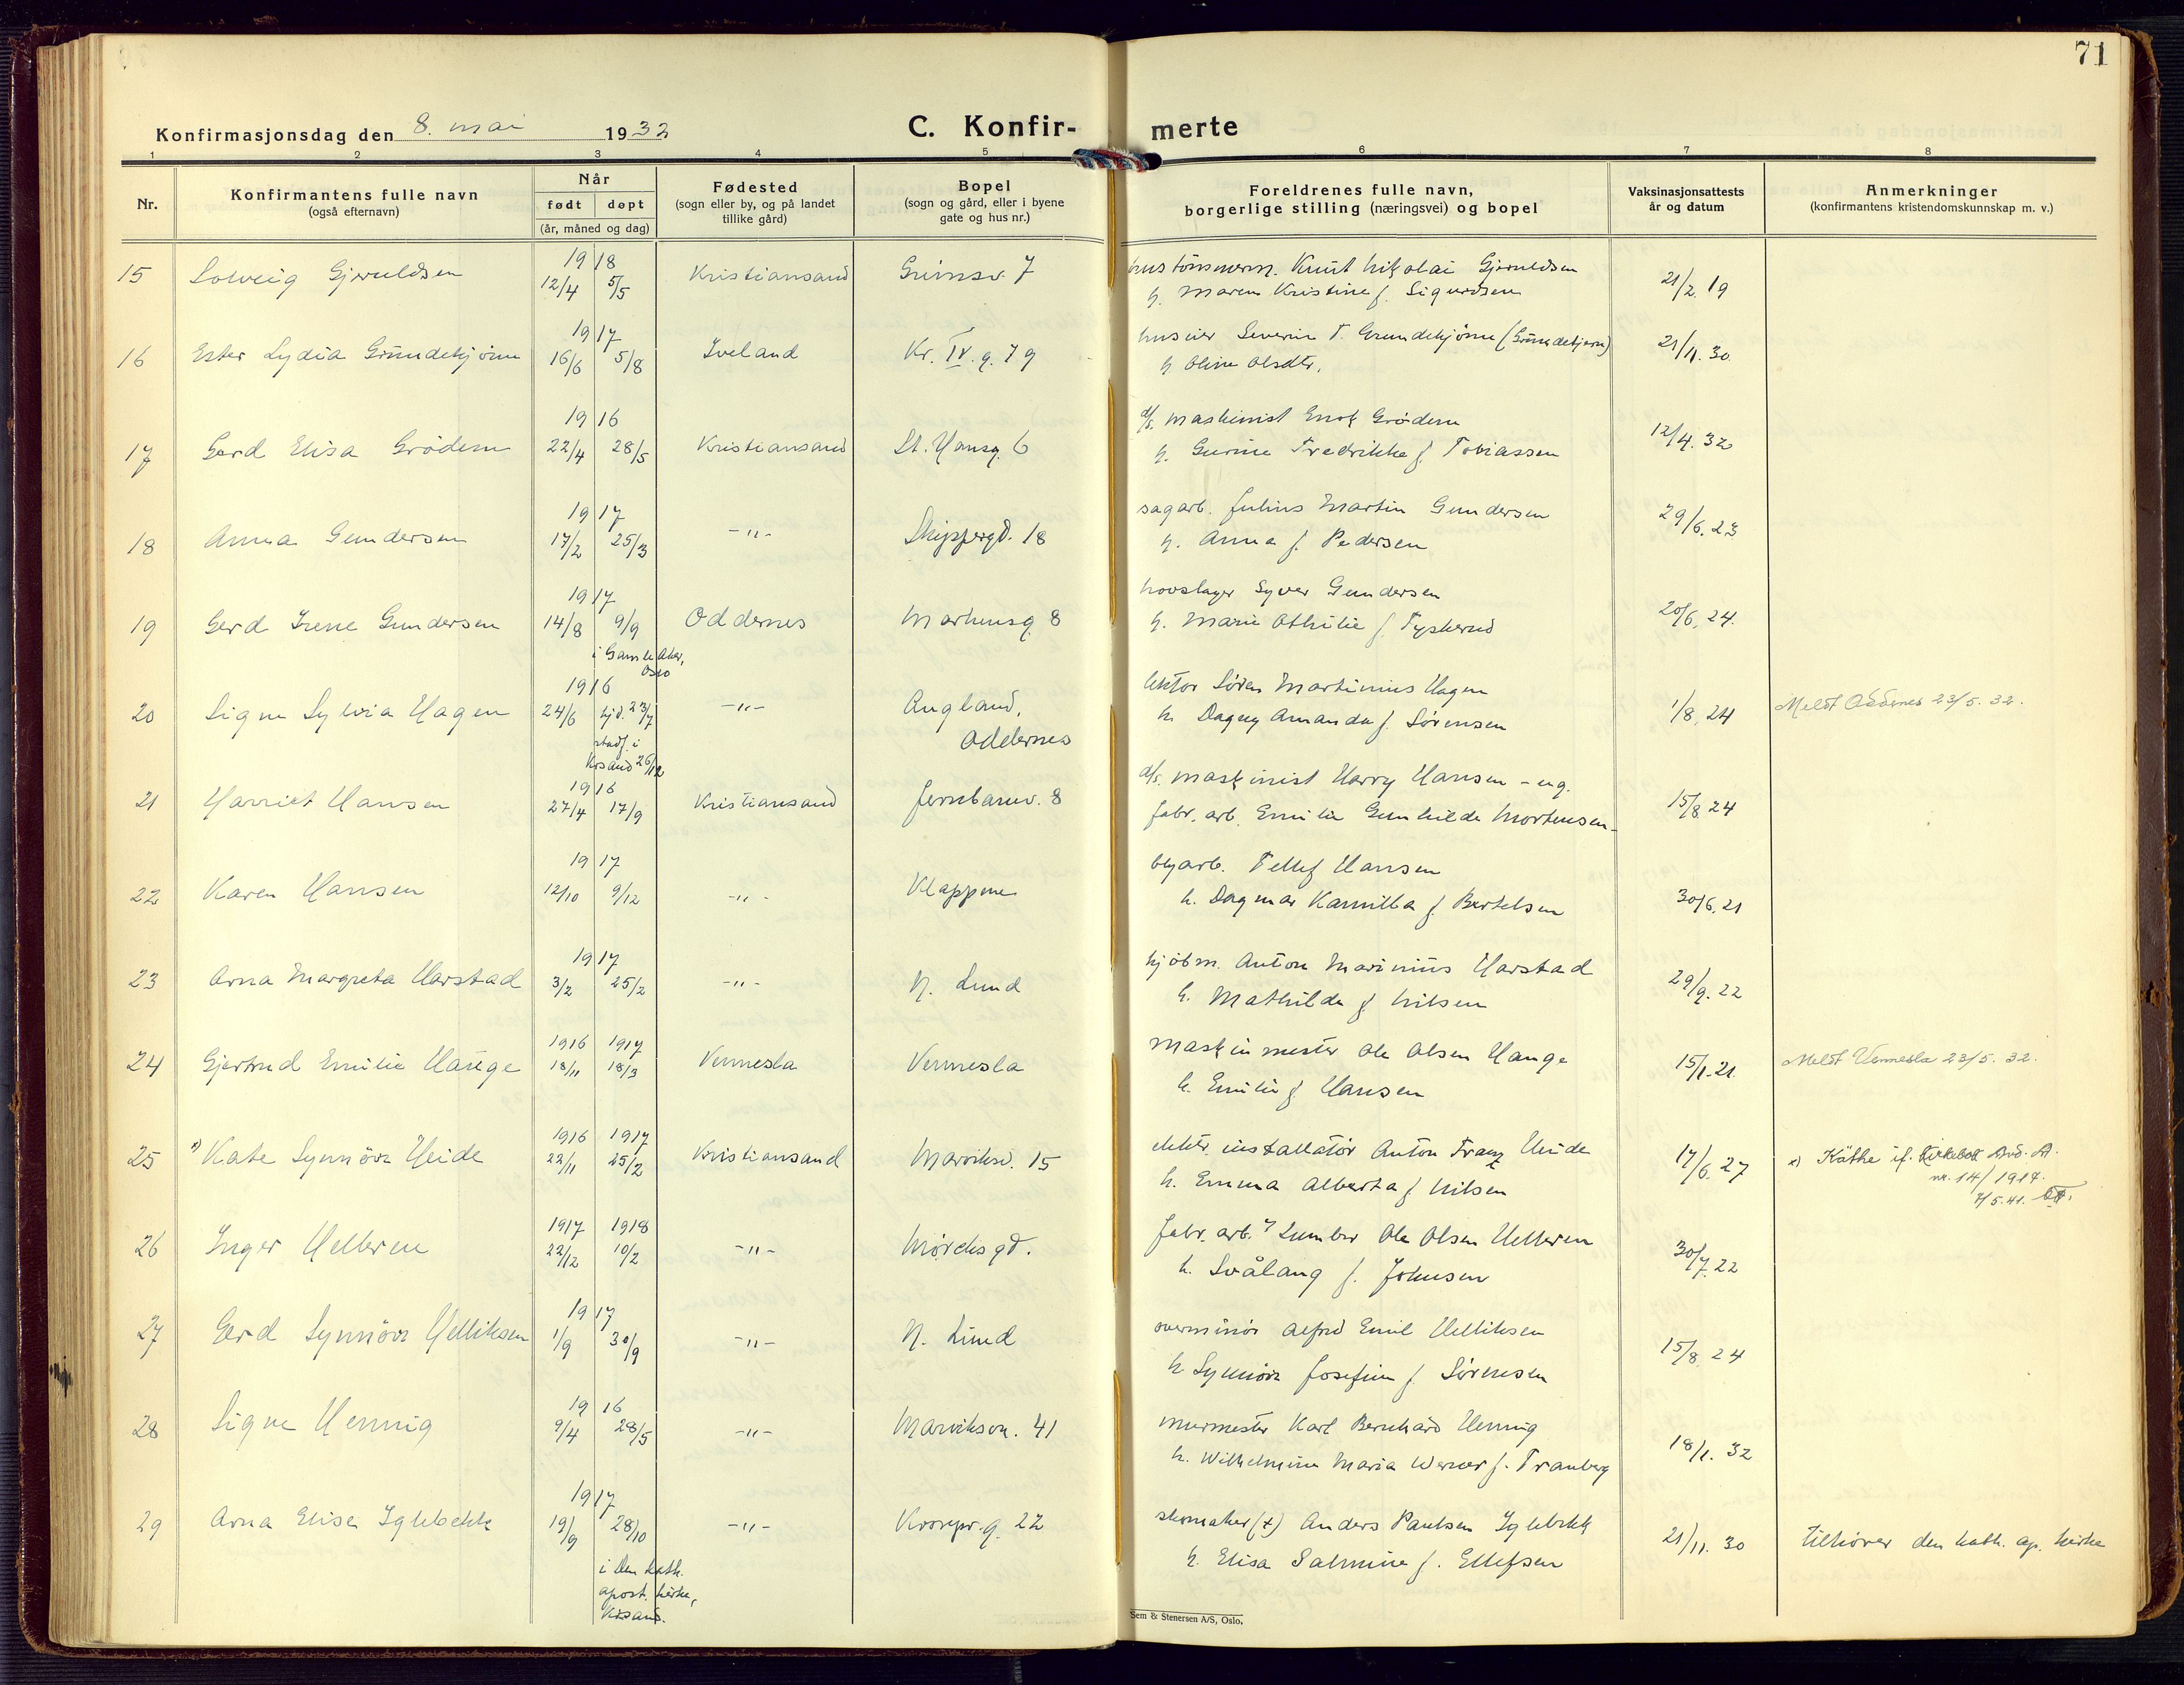 71
Konfirmasjonsdag den 8. mai 1932
C. Konfir- merte
1 2 3 4 5 6 7 8
Nr.
Konfirmantens fulle navn
(også efternavn)
Når
født døpt
(år, måned og dag)
Fødested
(sogn eller by, og på landet
tillike gård)
Bopel
(sogn og gård, eller i byene
gate og hus nr.)
Foreldrenes fulle navn,
borgerlige stilling (næringsvei) og bopel
Vaksinasjonsattests
år og datum
Anmerkninger
(konfirmantens kristendomskunnskap m. v.)
1918
15 Solveig Gjeruldsen 12/4 5/5 Kristiansand Grimsv. 7 Knut Nikolai Gjeruldsen 21/2. 19
h. Maren Kristine f. Sigurdsen
1917
16 Ester Lydia Grundekjønn 16/6 5/8 Iveland Kr. IV. g. 79 huseier Severin T. Grundekjønn (Grundekjern) 21/11. 30
h Oline Olsdtr.
1916
17 Gerd Elisa Grödem 22/4 28/5 Kristiansand St. Hansg. 6 d/s. maskinist Enok Grödem 12/4. 32
h. Gurine Fredrikke f. Tobiassen
1917
18 Anna Gundersen 17/2 25/3 -"- Skippergd. 18 sagarb. Julius Martin Gundersen 29/6. 23
h. Anna f. Pedersen
1917
19 Gerd Irene Gundersen 14/8 9/9 Oddernes Markensg. 8 hovslager Syver Gundersen 20/6. 24.
h. Marie Othilie f. Tyskerud
i Gamle Aker,
Oslo
1916
20 Signe Sylvia Hagen 24/6 hjd. 23/7 -"- Augland, lektor Søren Martinius Hagen 1/8. 24 Meldt Oddernes 23/5. 32.
Oddernes h. Dagny Amanda f. Sørensen
stadf. i
Krsand 26/12
1916
21 Harriet Hansen 27/4 17/9 Kristiansand Jernbanev. 8 d/s. maskinist Harry Hansen - ug. 15/8. 24
fabr. arb. Emilie Gunhilde Mortensen-
1917
22 Karen Hansen 12/10 9/12 -"- Klappene byarb. Tellef Hansen 30/6. 21
h. Dagmar Kamilla f. Bertelsen
1917
23 Arna Margreta Harstad 3/2 25/2 -"- N. Lund kjøbm. Anton Marinius Harstad 29/9. 22
h. Mathilde f. Nilsen
1916 1917
24 Gjertrud Emilie Hauge 18/11 18/3 Vennesla Vennesla maskinmester Ole Olsen Hauge 15/1. 21. Meldt Vennesla 23/5. 32.
h. Emilie f Hansen
1916 1917
25 x) Kate Synnöve Heide 22/11 25/2 Kristiansand Marviksv. 15 elektr. installatör Anton Franz Heide 17/6. 27 x) Käthe if. kirkebok Avd. A.
h. Emma Alberta f. Nilsen nr. 14/1917.
7/5.41.
1917 1918
26 Inger Helleren 22/12 10/2 -"- Mørcksgd. fabr. arb. Ole Olsen Helleren 30/7. 22
h. Svålaug f. Johnsen
1917
27 Gerd Synnöve Helliksen 1/9 30/9 -"- N. Lund overminör Alfred Emil Helliksen 15/8. 24
h. Synnöve Josefine f. Sørensen
1916
28 Signe Hennig 9/4 28/5 -"- Marviksv. 41 murmester Karl Bernhard Hennig 18/1. 32
h. Wilhelmine Maria Werner f. Tranberg
1917
29 Arna Elise Iglebekk 19/9 28/10 -"- Kronpr. g. 22 skomaker (+) Anders Paulsen Iglebekk 21/11. 30 tilhører den kath. ap. kirke
h. Elisa Salmine f. Ellefsen
i Den kath.
apost. kirke,
Krsand.
Sem & Stenersen A/S, Oslo.